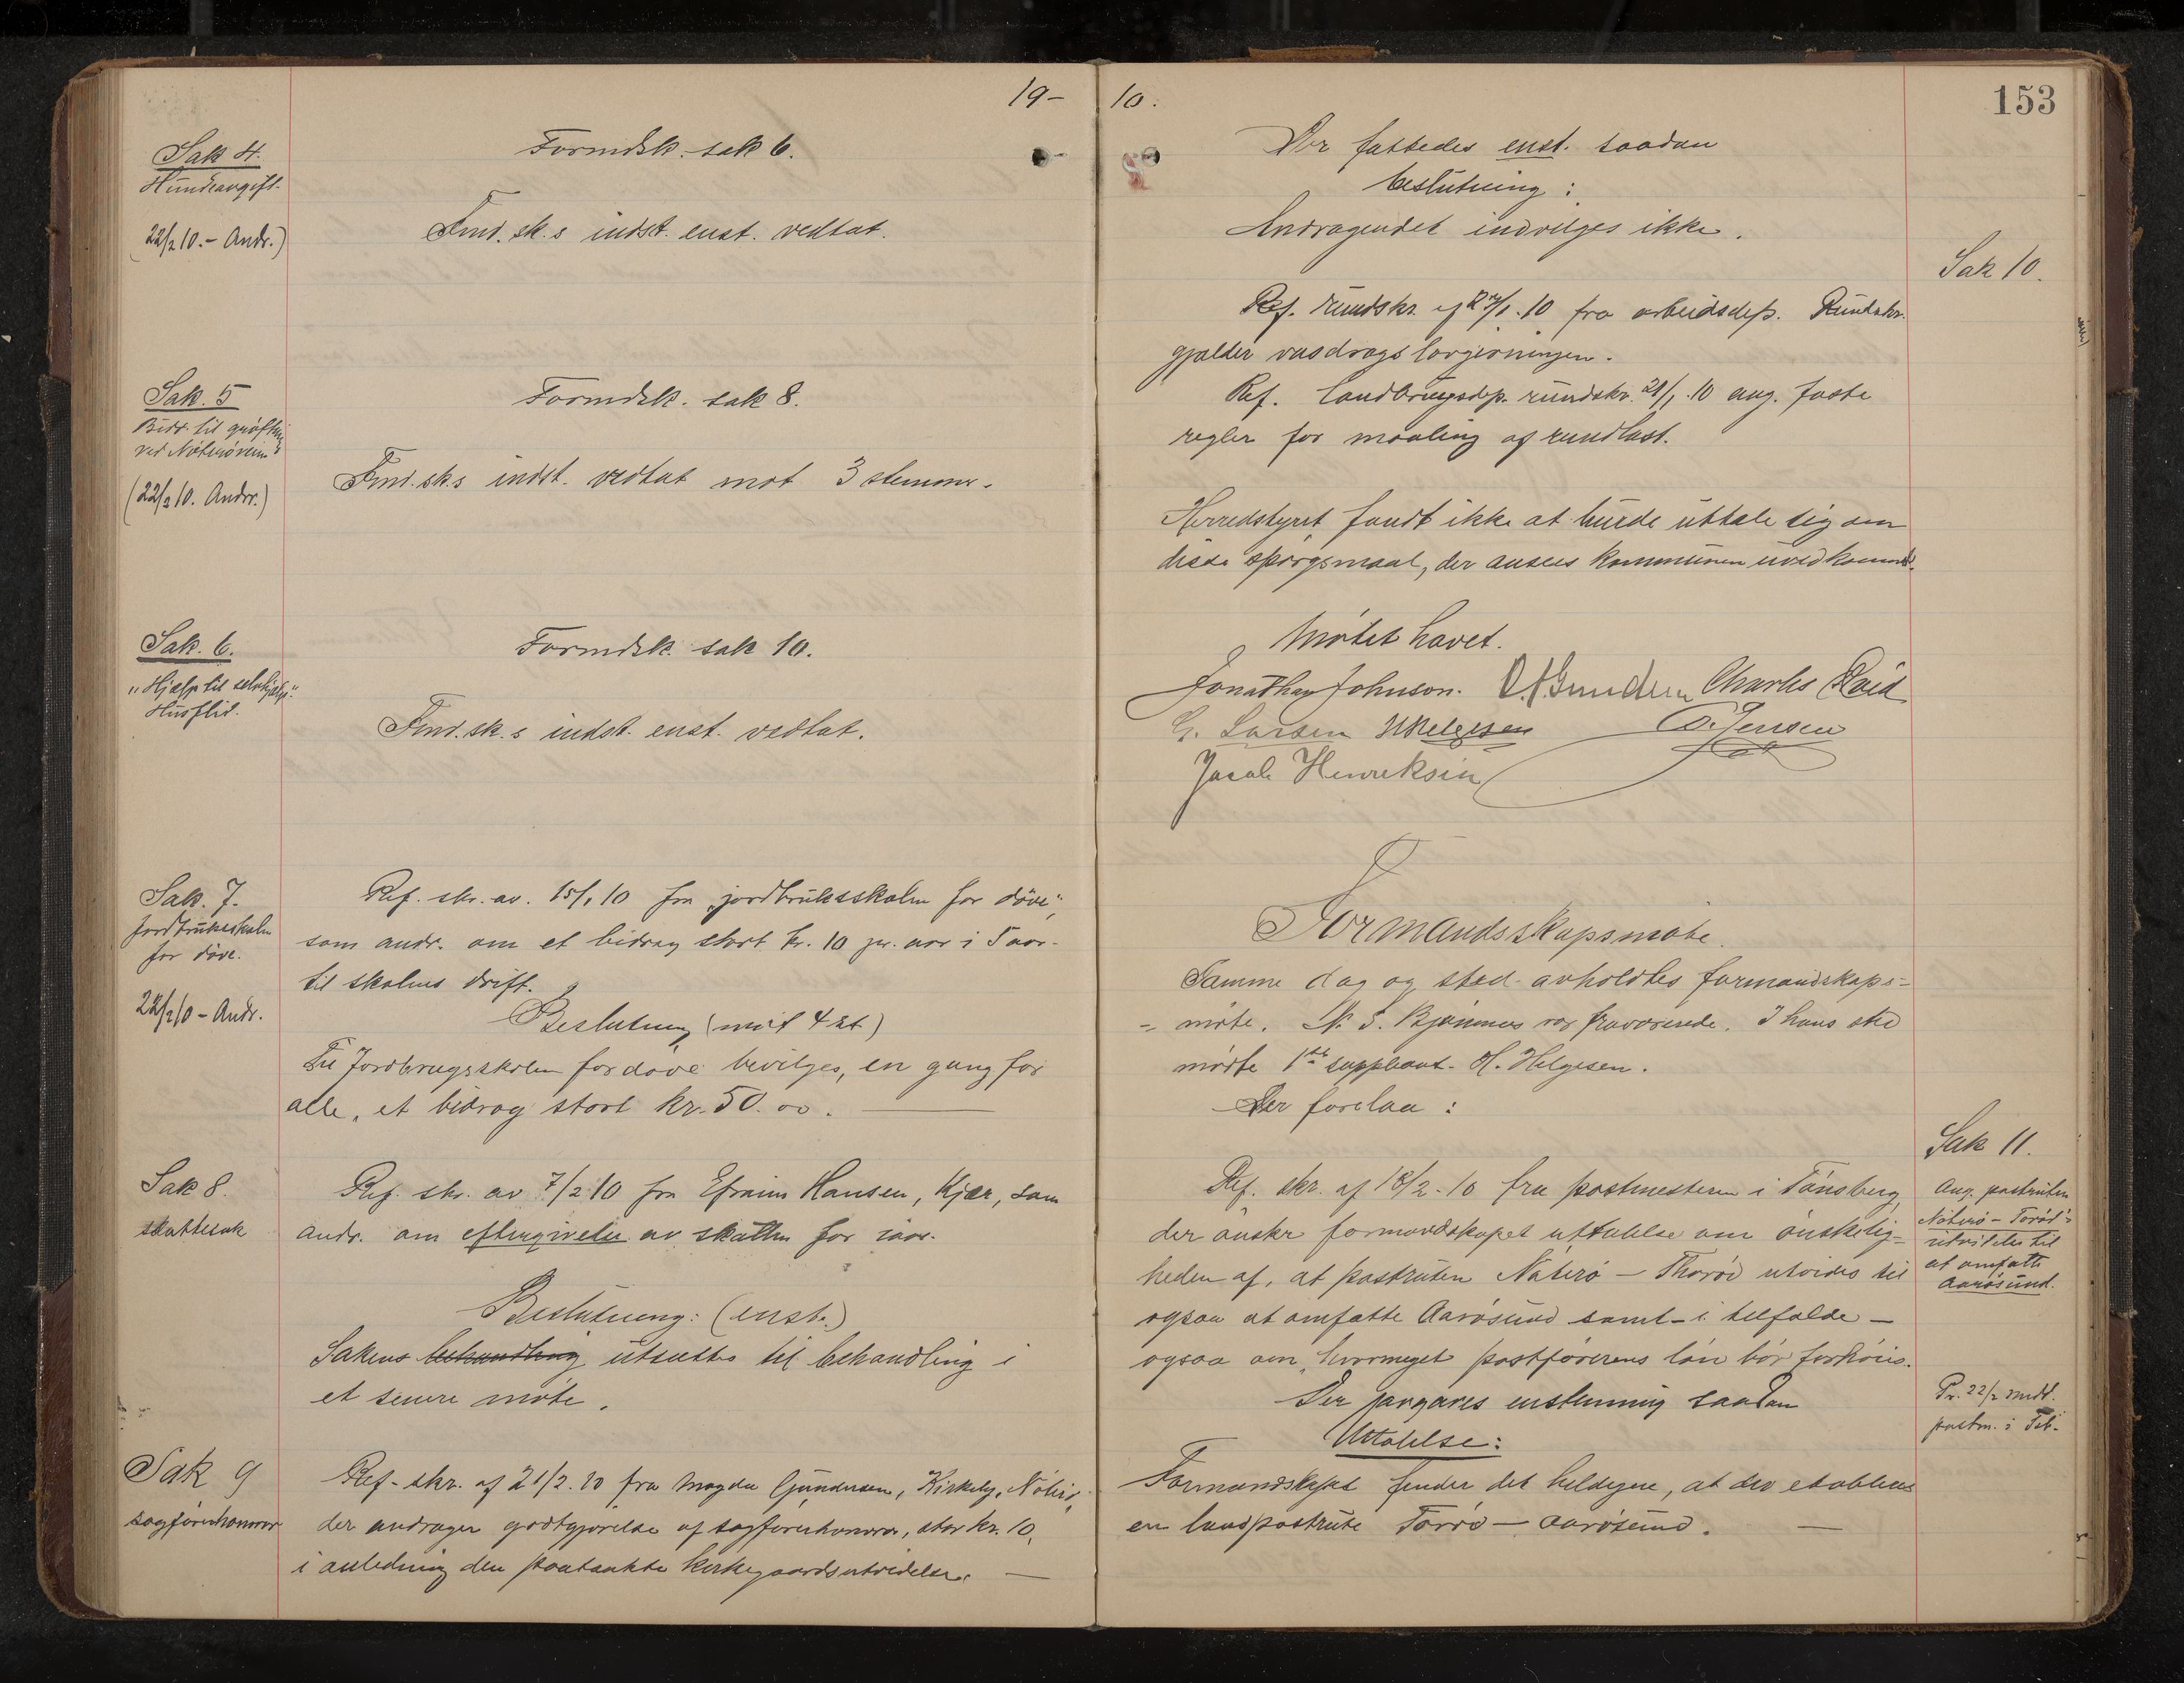 19-
Sak 4.
Hundeavgift.
(22/2 10. - Andr.)
Formdsk. sak 6.
Fmd. sk.s indst. enst. vedtat.
Sak. 5
Bidr. til grøftning
ved Nøterøveien
(22/2 10. Andr.)
Formdsk. sak 8.
Fmd. sk.s indst. vedtat mot 3 stemmer.
Sak. 6.
"Hjælp til selvhjælp".
Husflid.
Formdsk. sak 10.
Fmd. sk.s indst. enst. vedtat.
Sak. 7.
Jordbrukskolen
for døve.
22/2 10 - Andr.
Ref. skr. av. 15/1 10 fra "jordbruksskolen for døve",
som andr. om et bidrag stort kr. 10 pr. aar i 5 aar
til skolens drift.
Beslutning (mot 4 st.)
Til Jordbrugsskolen for døve bevilges, en gang for
alle, et bidrag stort kr. 50.00.
Sak 8.
skattesak
Ref. skr. av 7/2 10 fra Efraim Hansen, Kjær, som
andr. om eftergivelse av skatten for iaar.
Beslutning: (enst.)
Sakens behandling utsættes til behandling i
et senere møte.
Sak 9
sagførerhonorar
Ref. skr. af 21/2. 10 fra Magda Gundersen, Kirkeby, Nøterø,
der andrager godtgjørelse af sagførerhonorar, stor kr. 10,
i anledning den paatænkte kirkegaardsutvidelse. —
10.
153
Der fattedes enst. saadan
beslutning:
Andragendet indvilges ikke.
Sak 10.
Ref. rundskr. af 27/1. 10 fra arbeidsdep. Rundskr.
gjælder vasdragslovgivningen.
Ref. Landbrugsdep. rundskr. 21/1. 10 ang. faste
regler for maaling af rundlast.
Herredstyret fandt ikke at burde uttale sig om
disse spørgsmaal, der ansees kommunen uvedkomm.
Møtet hævet.
Jonathan Johnson. Charles Röed
G. Larsen H Helgesen O. Jensen
Jacob Henriksen
Formandsskapsmøte.
Samme dag og sted avholdtes formandskaps-
- møte. N. S. Bjønnes var fraværende. I hans sted
møtte 1ste suppleant H. Helgesen.
Der forelaa:
Sak 11.
Ang. postruten
Nøterø - Torød's
utvidelse til
at omfatte
Aarøsund.
Ref. skr. af 18/2 - 10 fra postmesteren i Tønsberg,
der ønsker formandskapet uttalelse om ønskelig-
heden af, at postruten Nøterø - Thorød utvides til
ogsaa at omfatte Aarøsund samt - i tilfælde -
ogsaa om, hvormeget postførerens løn bør forhøies.
Pr. 22/2 medd.
postm. i Tøb.
Der avgaves enstemmig saadan
Uttalelse:
Formandskapet finder det heldigere, at der etableres
en landpostrute Torød - Aarøsund. —